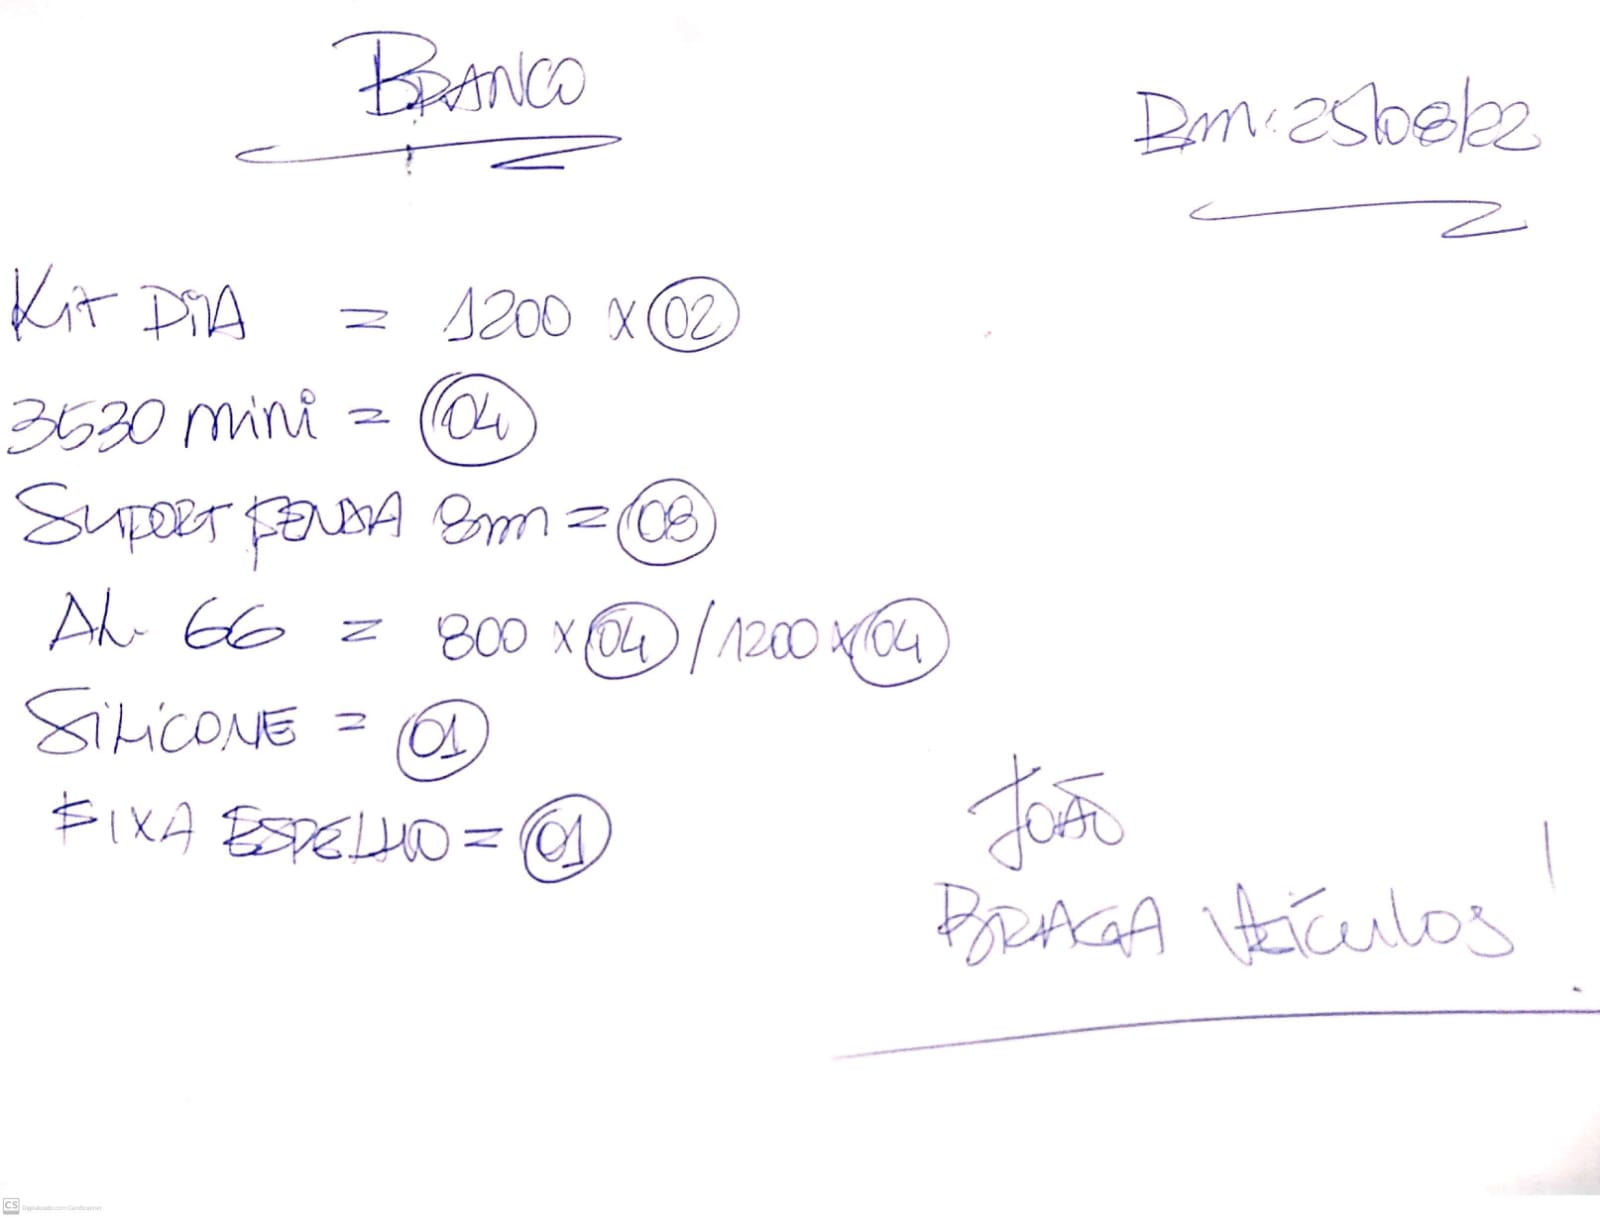 BRANCO
Em: 25/08/22
Kit DiA = 1200 x 02
3530 mini = 04
SUPORT FENDA 8mm = 08
AL 66 = 800 x 04 / 1200 x 04
SiLiCONE = 01
FIXA ESPELHO = 01
JOÃO
BRAGA Veículos!
CS Digitalizado com CamScanner